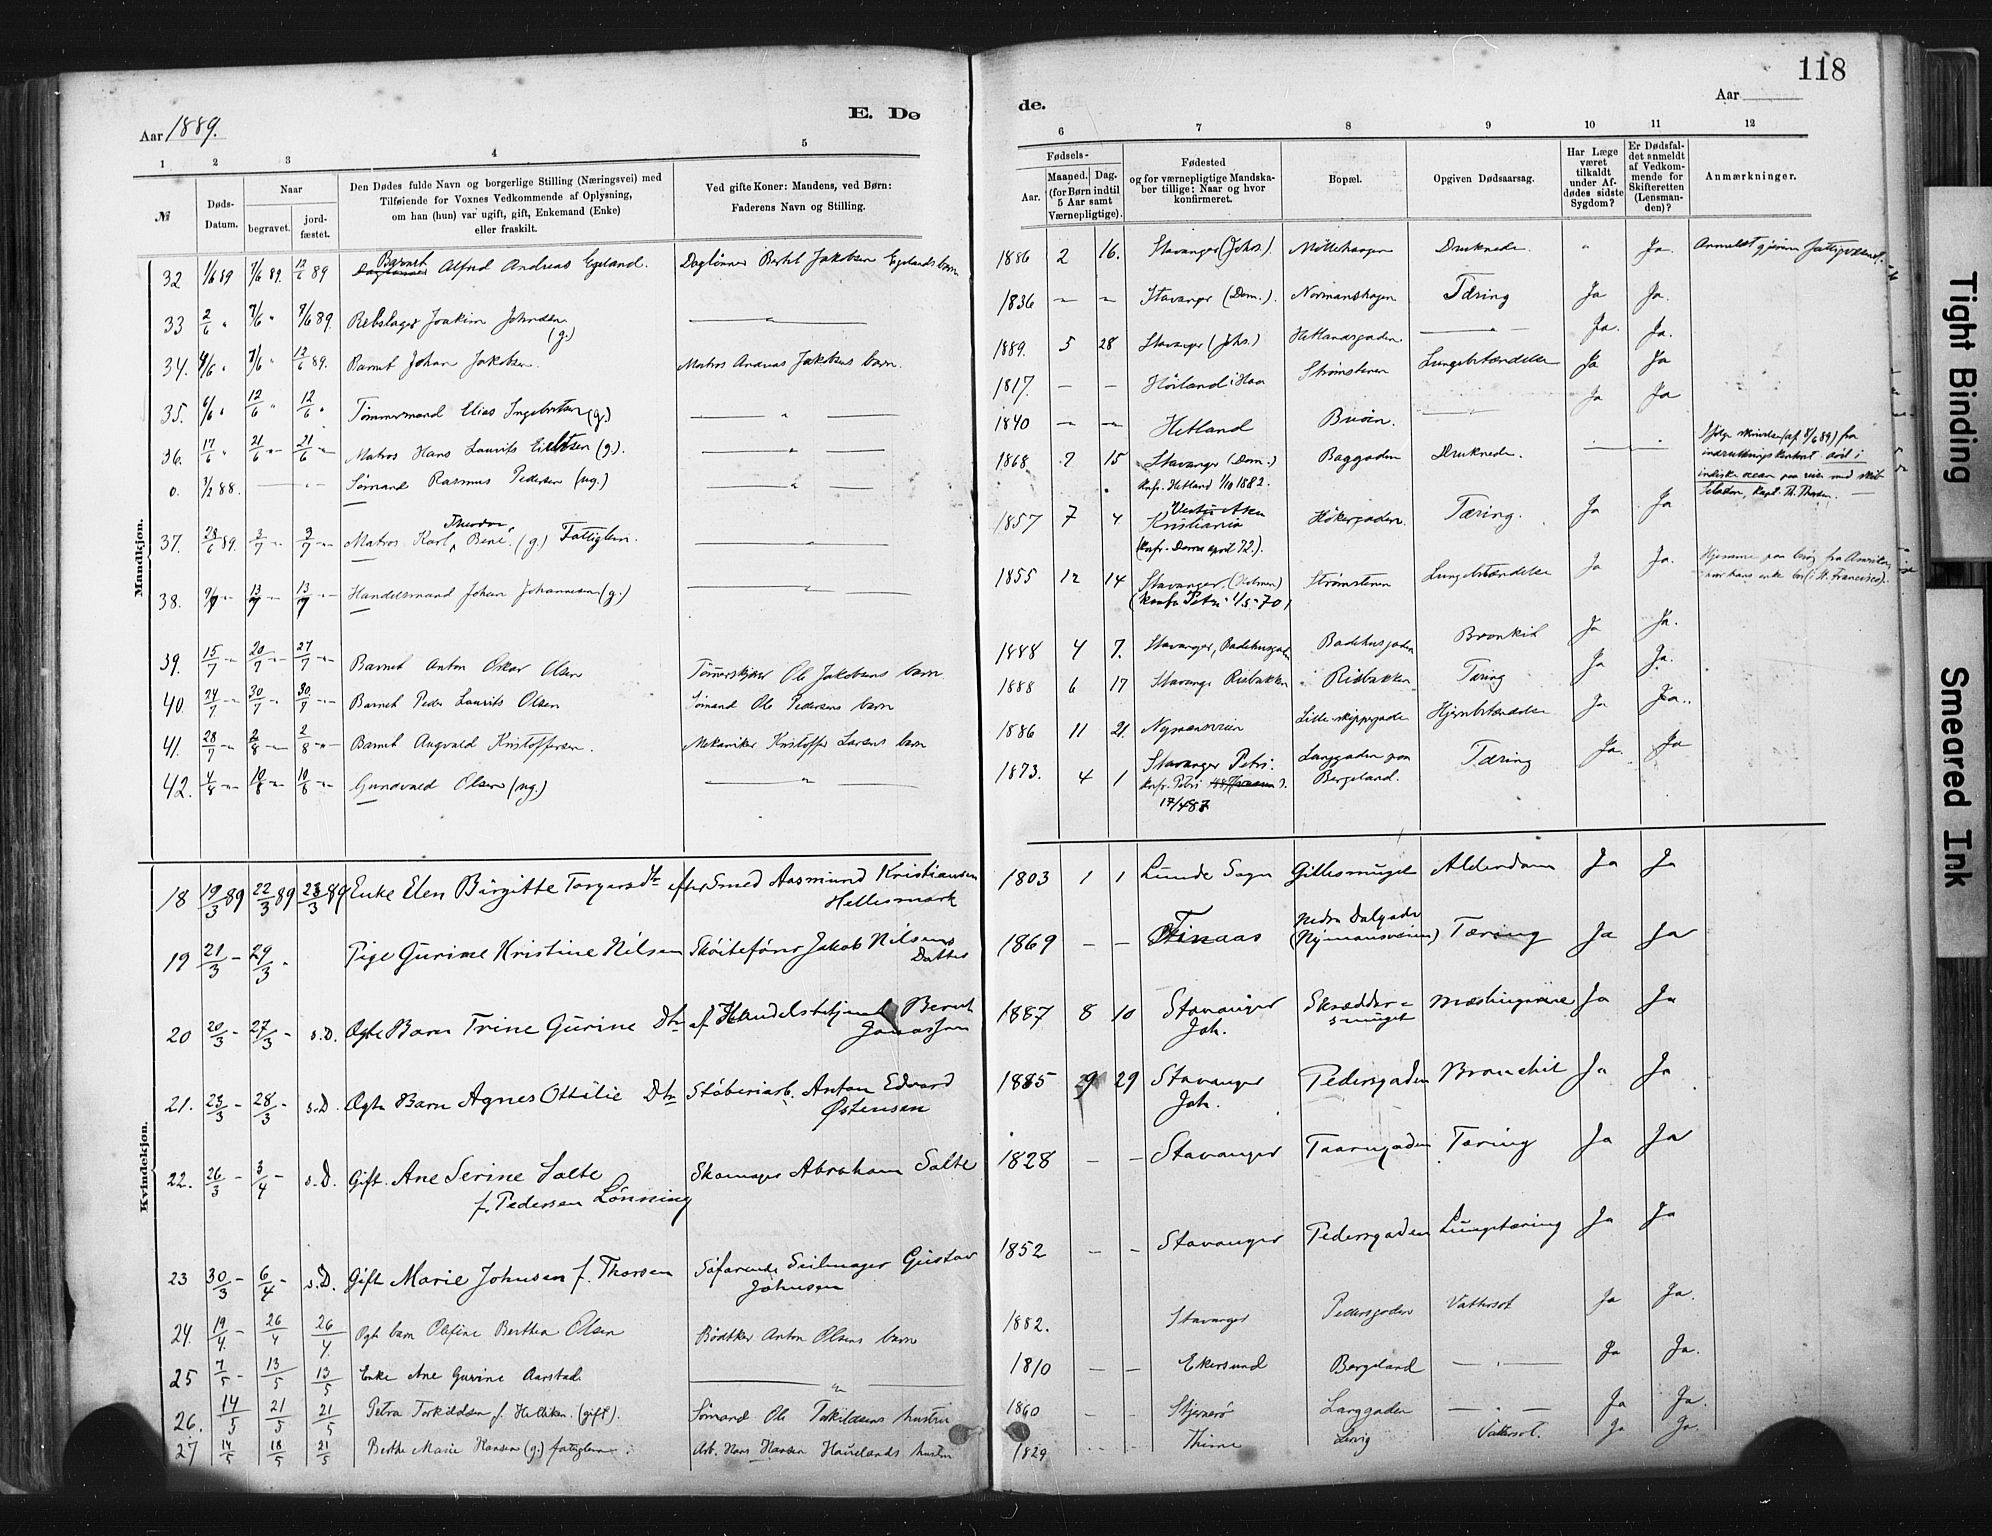 118
Aar 1889.
E. Dø
de.
Aar
1 2 3 4 5
6 7 8 9 10 11 12
№
Døds-Datum.
Naar
begravet.
jord-fæstet.
Den Dødes fulde Navn og borgerlige Stilling (Næringsvei) med
Tilføiende for Voxnes Vedkommende af Oplysning,
om han (hun) var ugift, gift, Enkemand (Enke)
eller fraskilt.
Ved gifte Koner: Mandens, ved Børn:
Faderens Navn og Stilling.
Fødsels-
Aar.
Maaned. Dag.
(for Børn indtil
5 Aar samt
Værnepligtige).
Fødested
og for værnepligtige Mandska-
ber tillige: Naar og hvor
konfirmeret.
Bopæl.
Opgiven Dødsaarsag.
Har Læge
været
tilkaldt
under Af-
dødes sidste
Sygdom?
Er Dødsfal-
det anmeldt
af Vedkom-
mende for
Skifteretten
(Lensman-
den)?
Anmærkninger.
Mandkjøn.
32 1/6 89 7/6 89. 12/6 89 Barnet Alfred Andreas Egeland. Daglønner Bertel Jakobsen Egelands barn 1886 2 16. Stavanger (Johs.). Druknede. " Ja.
33 2/6 " 7/6 " 7/6 89. Rebslager Joakim Johnsen (g.) — " — 1836 — — Stavanger (Dom.). Normanshagen Tæring Ja Ja.
34. 4/6 " 7/6 " 12/6 89. Barnet Johan Jakobsen. Matros Andreas Jakobsens barn. 1889. 5 28 Stavanger (Johs.) Hetlandsgaden — " — Ja. Ja.
35. 6/6 " 12/6 " 12/6 " Tømmermand Elias Ingebretsen (g.) — " — 1817. — — Høiland i Haa Strømstenen Lungebetændelse Ja Ja
36. 17/6 " 21/6 " 21/6 " Matros Hans Laurits Eilertsen (g). — " — 1840 — — Hetland Buøen. — " — Ja Ja
0. 3/2 88. — " — Sømand Rasmus Pedersen (ug.) — " — 1868 7 15 Stavanger (Dom.) Konf. Hetland 1/10 1882. Baggaden Druknede. — "
indiske ocean paa reise med skib
37. 28/6 89. 2/7 " 2/7 " Matros Karl Theodor, Bene. (g.) Fattiglem. — " — 1857 7 4 Kristiania (Konf. Domen april 72.). Høkergaden. Tæring. Ja Ja
38. 9/7 " 13/7 " 13/7 " Handelsmand Johan Johannesen (g.) — " — 1855 12 14 Stavanger, (Holmen) (Konf. Petri 1/5 70) Strømstenen Lungebetændelse Ja Ja. Hjemme paa besøg fra Amerika, hvor hans enke bor (i St. Francisco).
39. 15/7 " 20/7 " 27/7 " Barnet Anton Oskar Olsen Ole Jakobsens barn 1888 4 7. Stavanger, Badehusgaden Badehusgaden Bronkit Ja Ja.
40 24/7 " 30/7 " 30/7 " Barnet Peder Laurits Olsen Sømand Ole Pedersens barn 1888 6 17 Stavanger Risbakken Risbakken Tæring Ja Ja.
41. 28/7 " 2/8 " 2/8 " Barnet Augvald Kristoffersen. Mekaniker Kristoffer Larsens barn 1886 11 21. Nymansveien Lille skippergade Hjernebetændelse Ja Ja.
42. 4/8 " 10/8 " 10/8 " Gundvald Olsen (ug.) — " — 1873. 4 1 Stavanger Petri. Konf. Petri 17/4 87 Langgaden paa Bergeland. Tæring Ja. Ja
Kvindekjøn.
18 19/3 89 22/3 89 23/3 89 Enke Elen Birgitte Torgersdtr efter Smed Aasmund Kristiansen Hellesmark 1803 1 1 Lunde Sogn Gillesmuget Alderdom Ja Ja
19 21/3 – 29/3 " Pige Gurine Kristine Nilsen Skøitefører Jakob Nilsens Datter 1869 — — Finaas Nedre Dalgade (Nymansveien) Tæring Ja Ja
20 20/3 – 27/3 – s.D. Ægte Barn Trine Gurine Dtr af Handelsbetjent Bernt Jonassen 1887 8 10 Stavanger Joh. Skræddersmuget Mæslinger Ja Ja
21. 23/3 – 28/3 – s.D. Ægte Barn Agnes Ottilie Dtr Støberiarb. Anton Edvard Østensen 1885 9 29 Stavanger Joh. Pedersgaden Bronchit Ja Ja
22. 26/3 – 3/4 – s.D. Gift. Ane Serine Salte f. Pedersen Lønning Skomager Abraham Salte 1828 – – Stavanger Taarngaden Tæring Ja Ja
23 30/3 – 6/4 – s.D. Gift Marie Johnsen f. Thorsen Søfarende Seilmager Gustav Johnsen 1852 – – Stavanger Pedersgaden Lungetæring Ja Ja
24. 19/4 – 26/4 26/4. Ægte barn Olefine Berthea Olsen Bødtker Anton Olsens barn 1882. Stavanger Pedersgaden Vattersot Ja Ja.
25 7/5 – 13/5 13/5 Enke Ane Gurine Aarstad. — " — 1810 — — Ekersund Bergeland — " — Ja Ja.
26. 14/5 21/5 21/5 Petra Torkildsen f. (gift). Sømand Ole Torkildsens hustru 1860 – – Stjernerø Langgaden — " — Ja Ja.
27 14/5 18/5 21/5 Berthe Marie Hansen (g.) fattiglem. Arb. Hans Hansen Haulands hustru 1829 Thime Vattersot. Ja Ja.
Tight Binding
Smeared Ink